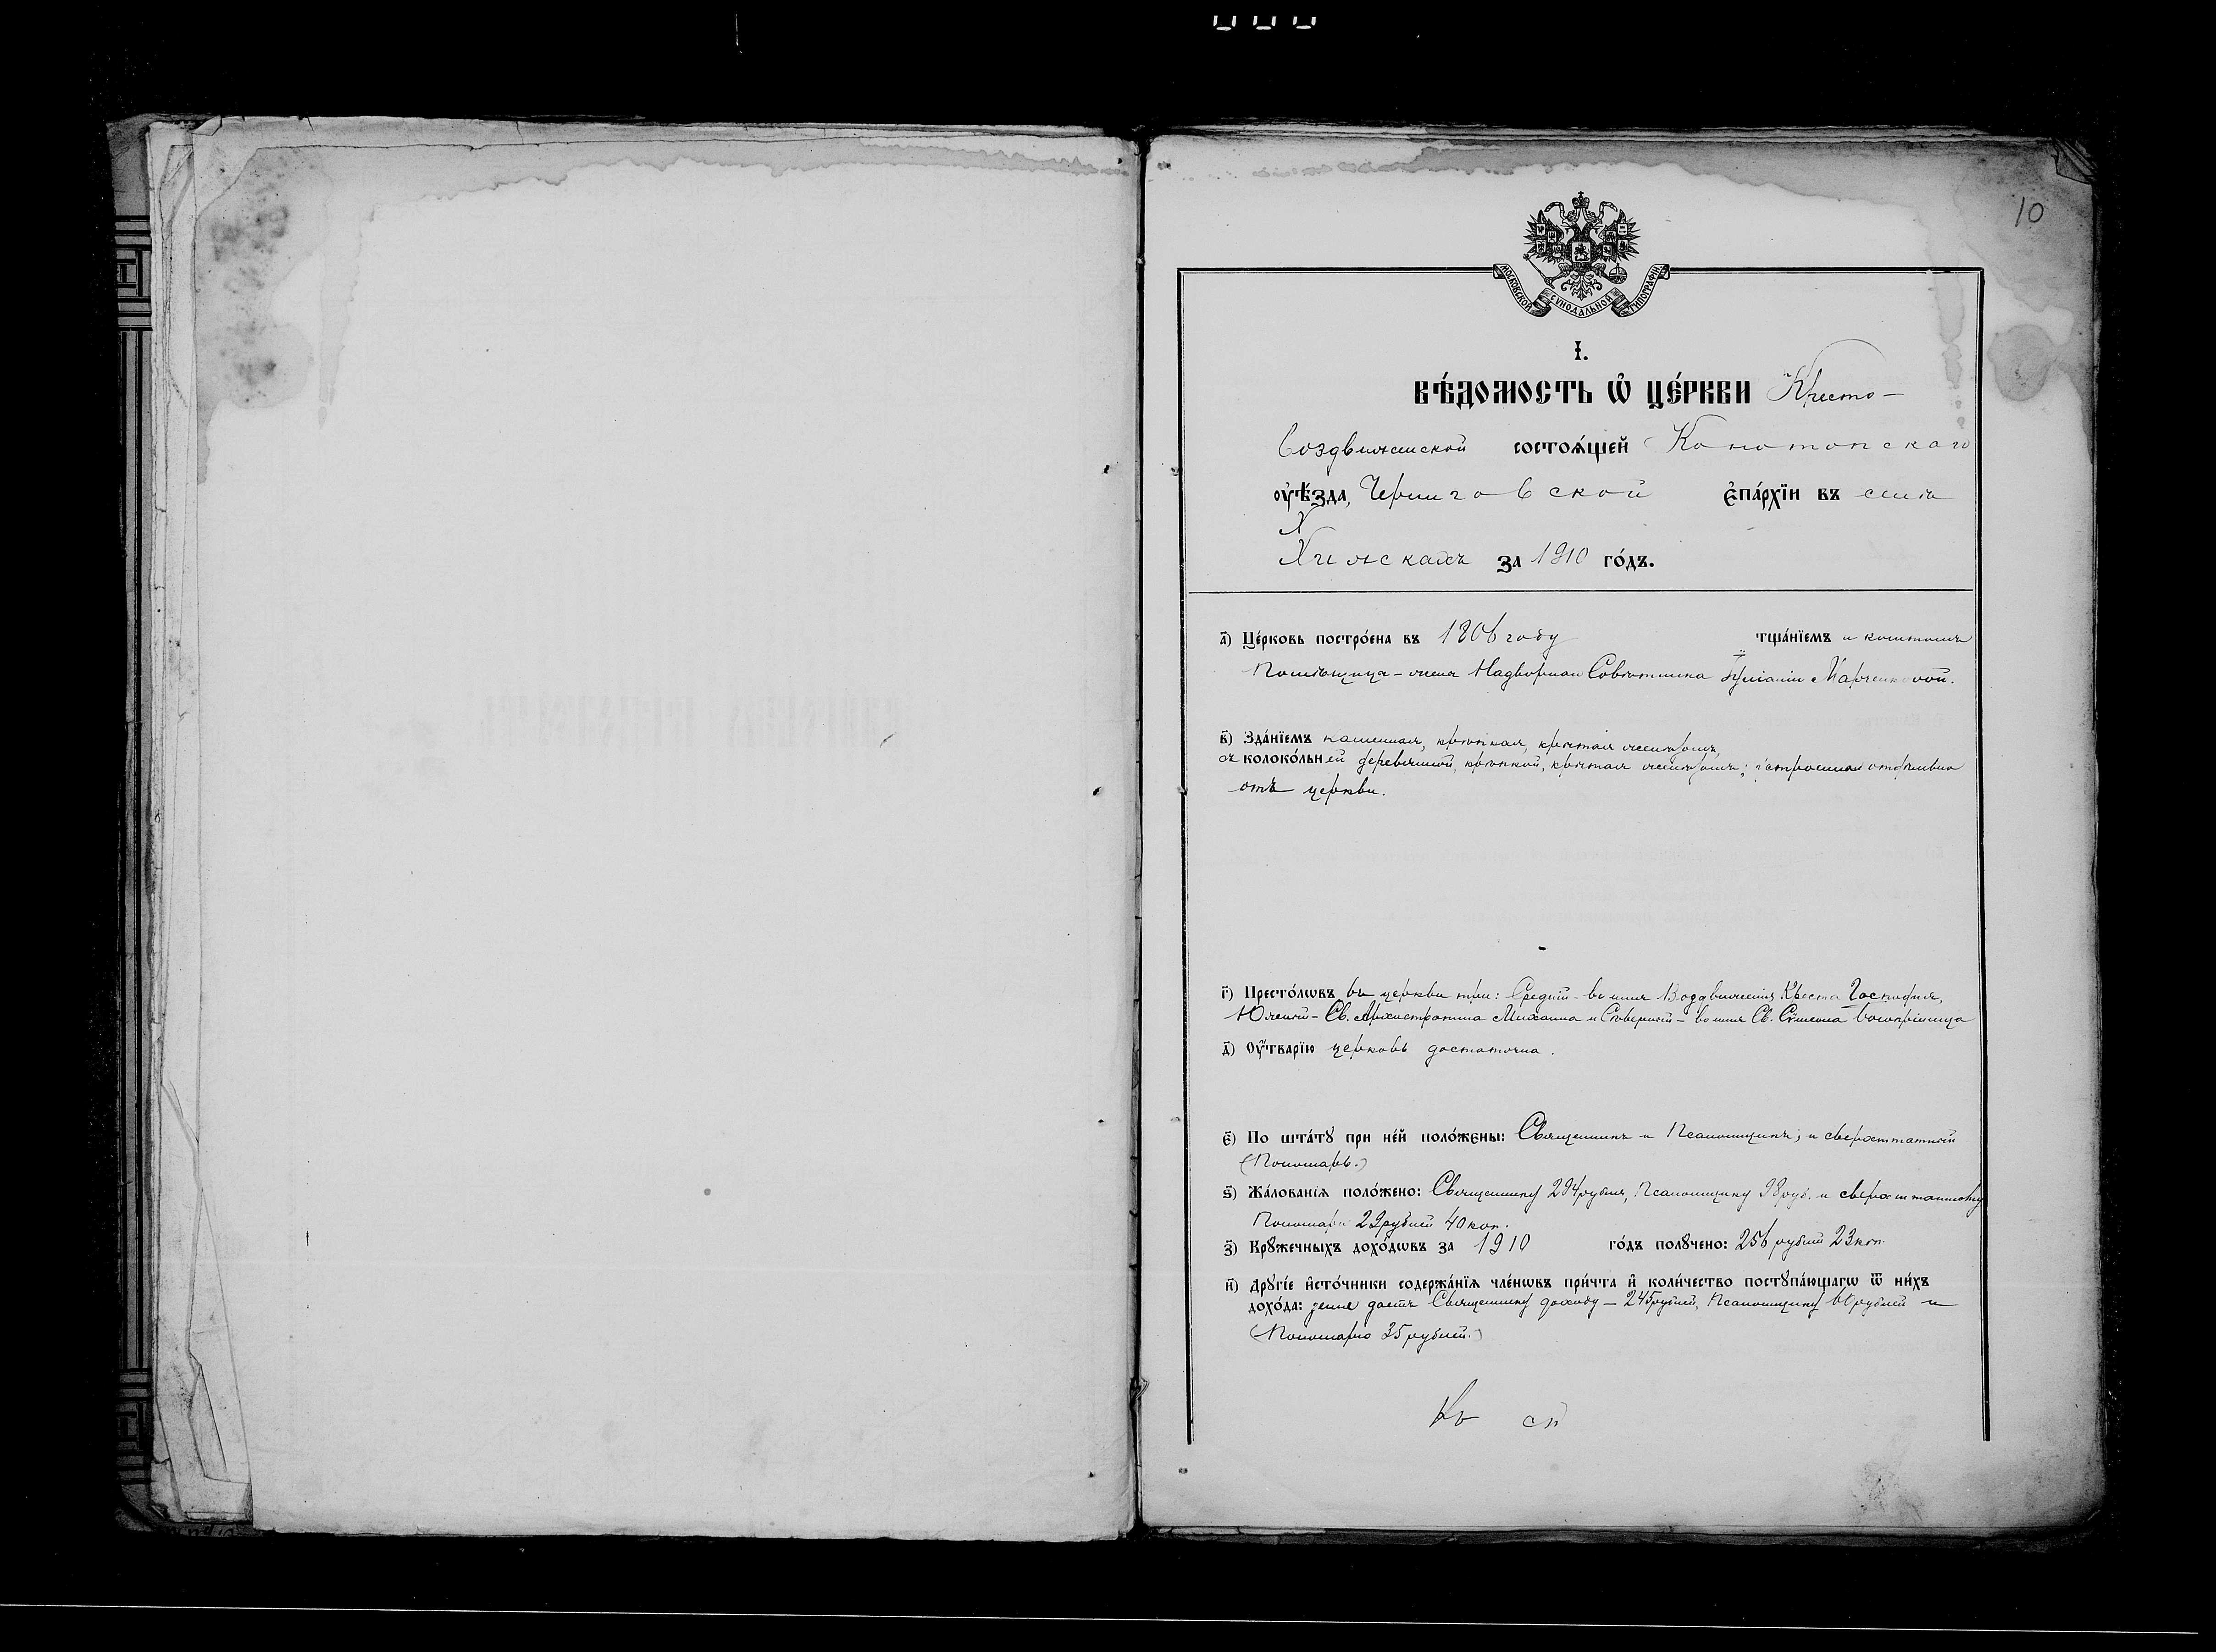 10
МОСКОВСКОЙ СѴНОДАЛЬНОЙ ТИПОГРАФІИ
І.
ВѢ́ДОМОСТЬ Ѡ҆ ЦЕ́РКВИ Кресто-
Воздвиженской состоѧ́щей Конотопскаго
оуѣ́зда, Черниговской є҆па́рхїи въ селѣ
Х
Хижкахъ за 1910 го́дъ.
а҃) Це́рковь постро́ена въ 1806 году тща́нїемъ и коштомъ
Помѣщицы - жена Надворнаго Совѣтника Марченковой.
в҃) Зда́нїемъ каменная, крѣпкая, крытая желѣзомъ,
съ колоко́льней деревянной, крѣпкой, крытая желѣзомъ; устроенная отдѣльно
отъ церкви.
г҃) Престо́лѡвъ въ церкви три: Средній - во имя Воздвиженія Креста Господня,
Южный - Св. Архистратига Михаила и Сѣверный - во имя Св. Сѵмеона Богопріимца
д҃) Оу҆́тварїю церковь достаточна.
є҃) По шта́тꙋ при не́й поло́жены: Священникъ и Псаломщикъ; и сверхштатный
(Пономарь.)
ѕ҃) Жа́лованїѧ поло́жено: Священнику 294 рубля, Псаломщику 98 руб. и сверхштатному
Пономарю 29 рублей 40 коп.
з҃) Крꙋ́жечныхъ дохо́дѡвъ за 1910 го́дъ полꙋ́чено: 256 рублей 23 коп.
и҃) Дрꙋгі́е и҆сто́чники содержа́нїѧ чле́нѡвъ при́чта и҆ коли́чество постꙋпа́ющагѡ ѿ ни́хъ
дохо́да: земля даетъ Священнику доходу - 245 рублей, Псаломщику 60 рублей и
(Пономарю 35 рублей.)